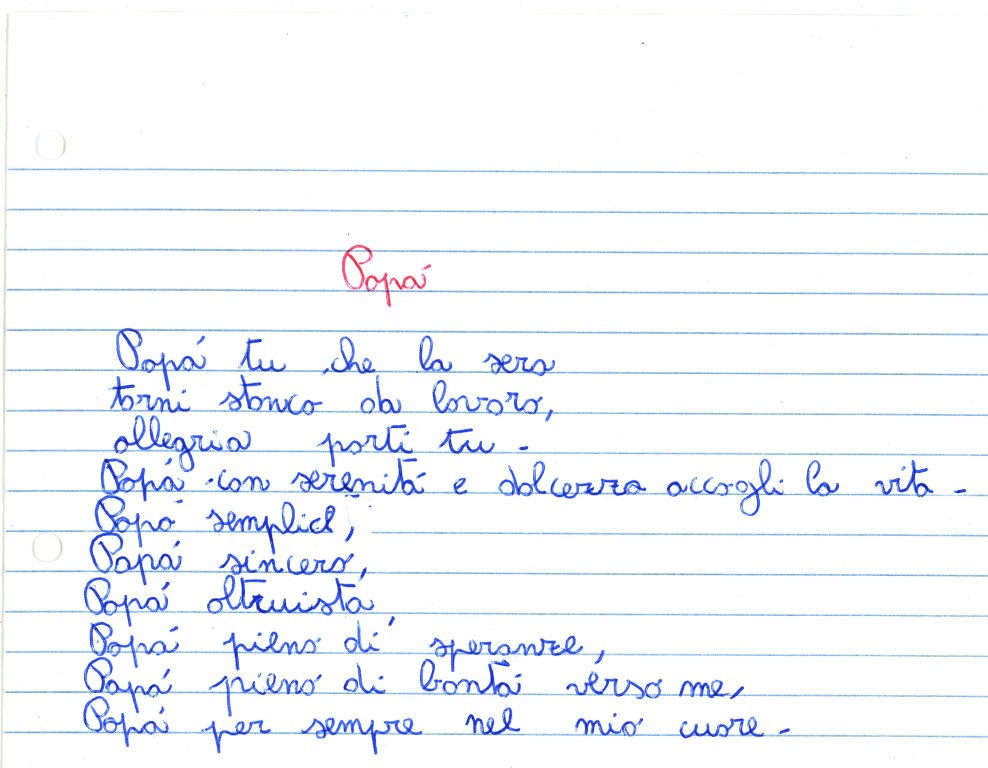 Papá
Papá tu che la sera
torni stanco da lavoro,
allegria porti tu -
Papá con serenitá e dolcezza accogli la vita -
Papá semplice,
Papá sincero,
Papá altruista,
Papá pieno di speranze,
Papá pieno di bontá verso me,
Papá per sempre nel mio cuore -